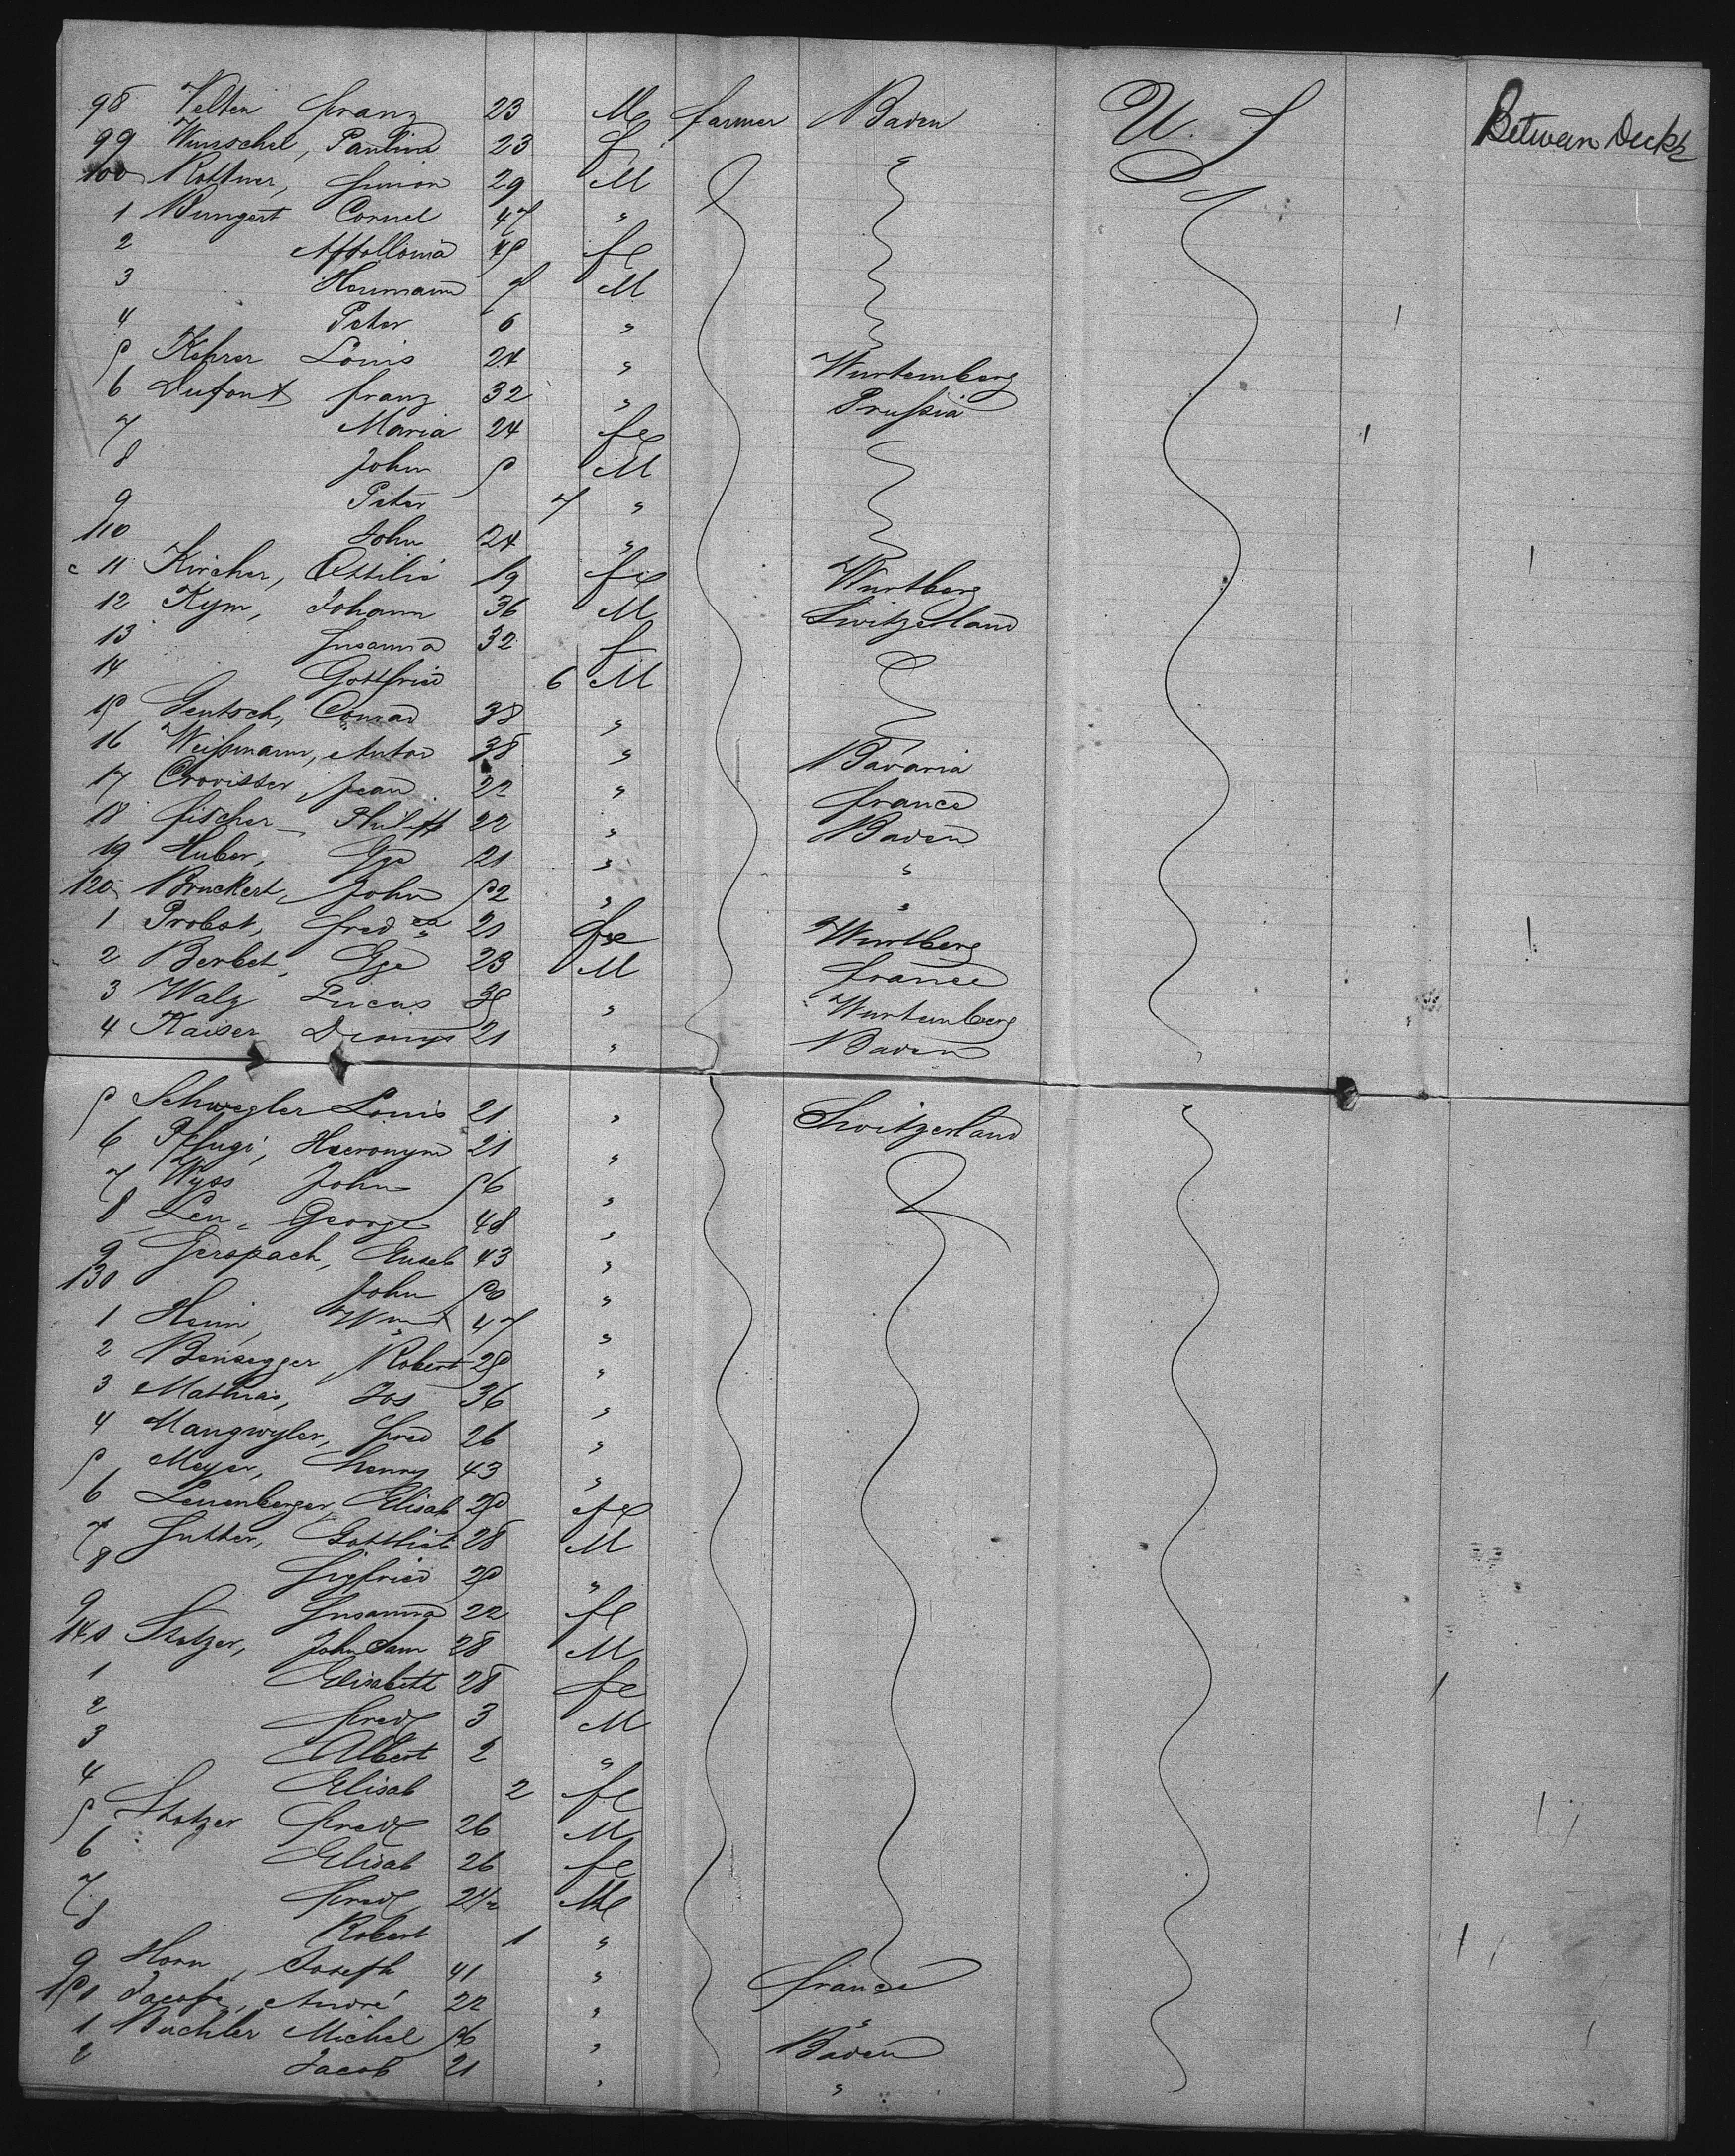 98 Velten Franz 23 M farmer Baden U. S. Betwen Decks
99 Wunschel, Paulina 23 f
100 Rottner, Simon 29 M
1 Bungert Cornel 47 "
2 Appollonia 45 fe
3 Hermann 7 M
4 Peter 6 "
5 Kehrer Louis 24 " Wurtemberg
6 Dupont franz 32 " Prussia
7 Maria 24 fe
8 John 5 M
9 Peter 7 "
110 John 24 "
11 Kircher, Ottilie 19 fe Wurtberg
12 Kym, Johann 36 M Switzerland
13 Susanna 32 f
14 Gottfried 6 M
15 Gentsch, Conrad 38 "
16 Weissmann, Anton 38 " Bavaria
17 Crovisser, Jean 22 " france
18 fischer Philipp 22 " Baden
19 Huber, Gge 21 " "
120 Bruckert, John 52 " "
1 Probst, fredca 21 fe Wurtberg
2 Berbet, Gge 23 M france
3 Walz Lucas 35 " Wurtemberg
4 Kaiser Dionys 21 " Baden
5 Schwegler Louis 21 " Switzerland
6 Pflugi, Hieronym 21 "
7 Wyss John 56 "
8 Leu George 48 "
9 Gerspach, Euseb 43 "
130 John 50 "
1 Heini, Wm 47 "
2 Bensegger, Robert 25 "
3 Mathias, Jos 36 "
4 Mangwyler, fred 26 "
5 Meyer, henry 43 "
6 Leuenberger, Elisab 25 fe
7 Sutter, Gottlieb 28 M
8 Sigfried 25 "
9 Susanna 22 fe
140 Stotzer, John Sam 28 M
1 Elisabeth 28 fe
2 fredk 3 M
3 Albert 2 "
4 Elisab 2 fe
5 Stotzer fredk 26 M
6 Elisab 26 fe
7 fredk 2 1/2 M
8 Robert 1 "
9 Horn, Joseph 41 " france
150 Jacope, André 22 " "
1 Buchler Michel 56 " Baden
2 Jacob 21 " "